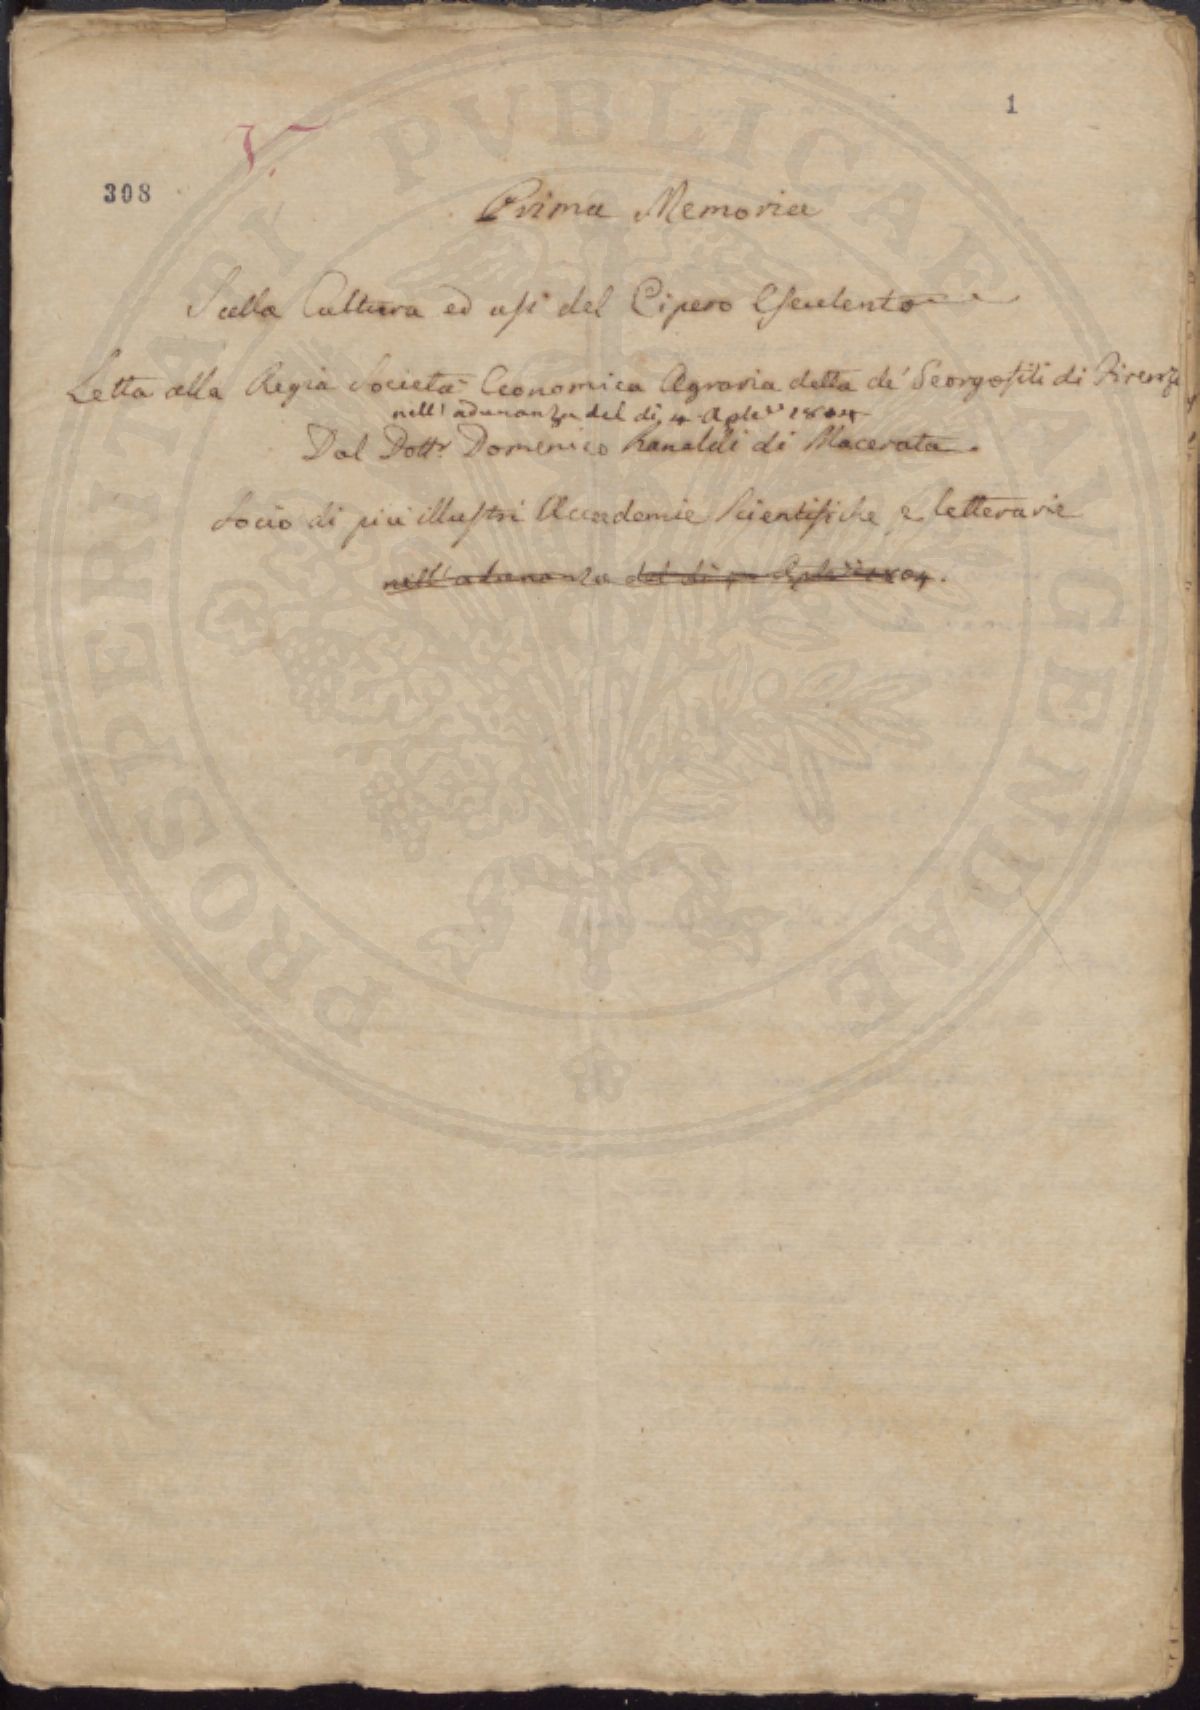 1
V.
308
Prima Memoria
Sulla Cultura ed usi del Cipero Esculento
Letta alla Regia Società Economica Agraria detta de' Georgofili di Firenze
nell' adunanza del di 4 Aple 1804
Dal Dottr. Domenico Ranaldi di Macerata.
Socio di più illustri Accademie Scientifiche e letterarie
nell' adunanza del di 1804.
PROSPERITATI PUBLICAE AUGENDAE